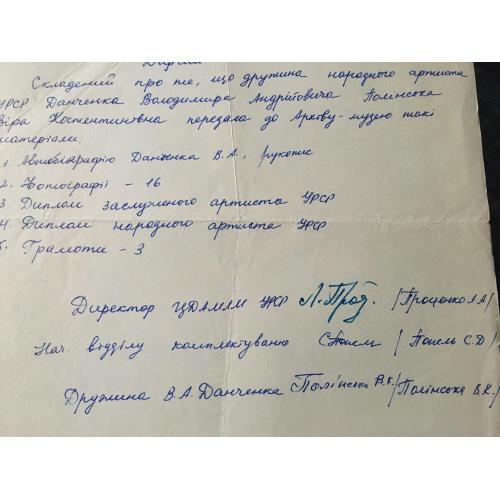 Складений про те, що дружина народного артиста
УРСР Данченка Володимира Андрійовича Полінська
Віра Костентиновна передала до Архіву-музею такі
матеріали:
1. Автобіографію Данченка В.А., рукопис
2. Фотографії - 16
3. Диплом заслуженого артиста УРСР
4. Диплом народного артиста УРСР
5. Грамоти - 3
Директор ЦДАМЛМ УРСР Л. Проц. /Проценко Л.А/
Нач. відділу комплектування /Попель С.Д/
Дружина В.А. Данченка Полінська В.К. /Полінська В.К./